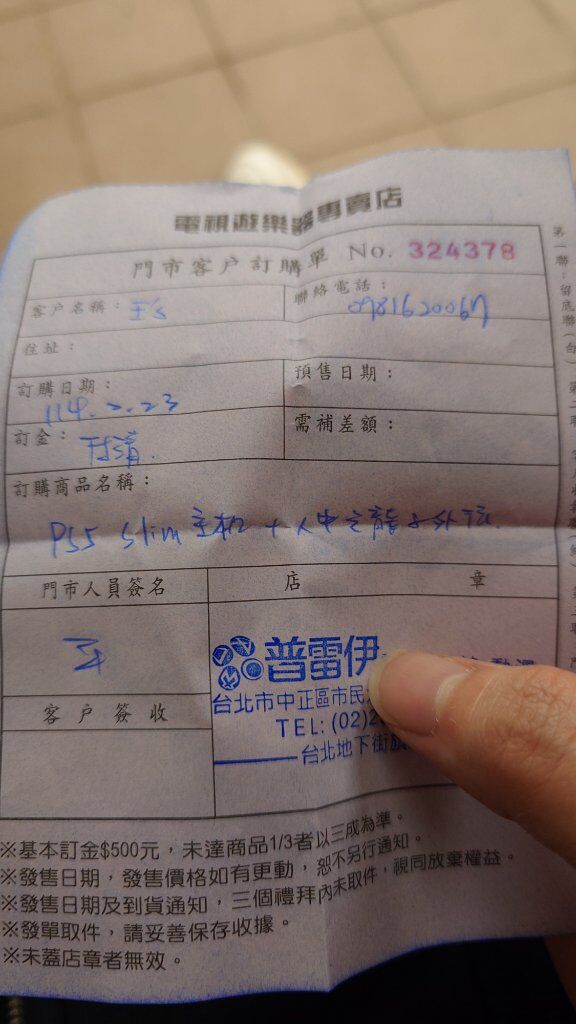 電視遊樂器專賣店
門市客戶訂購單 No. 324378
客戶名稱：
聯絡電話：0981620067
住址：
訂購日期：114.2.23
預售日期：
訂金：付清.
需補差額：
訂購商品名稱：
PS5 Slim 主机 + 人中之龍 8 外
門市人員簽名
店 章
客戶簽收
普雷伊
台北市中正區市民
TEL:(02)2
台北地下街
※基本訂金$500元，未達商品1/3者以三成為準。
※發售日期，發售價格如有更動，恕不另行通知。
※發售日期及到貨通知，三個禮拜內未取件，視同放棄權益。
※發單取件，請妥善保存收據。
※未蓋店章者無效。
第一聯：留底聯(白)